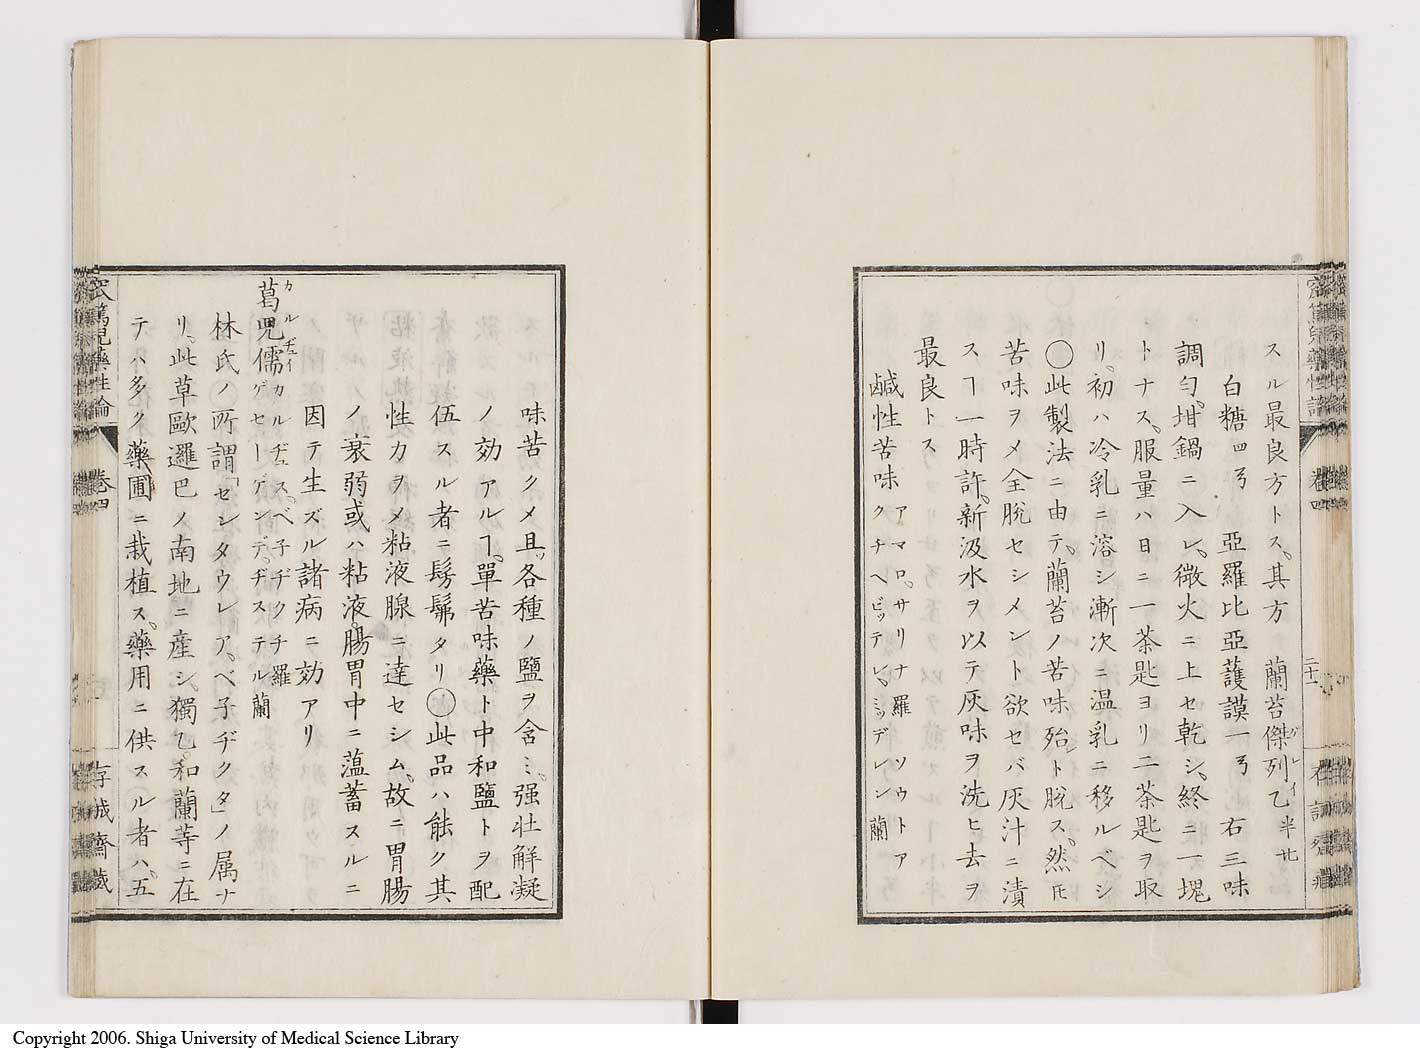 スル最良方トス。其方 蘭苔傑列乙半廿
白糖四ゟ 亞羅比亞護謨一ゟ 右三味
調勻。坩鍋ニ入レ。微火ニ上セ乾シ。終ニ一塊
トナス。服量ハ日ニ一茶匙ヨリ二茶匙ヲ取
リ。初ハ冷乳ニ溶シ漸次ニ温乳ニ移ルベシ
〇此製法ニ由テ。蘭苔ノ苦味殆ント脱ス。然𪜈
苦味ヲメ全脱セシメント欲セバ灰汁ニ漬
スヿ一時許。新汲水ヲ以テ灰味ヲ洗ヒ去ヲ
最良トス
鹹性苦味 アマロ。サリナ羅 ソウトア
クチヘビッテレ。ミッデレン蘭
味苦クメ且ッ各種ノ鹽ヲ含ミ。强壮解凝
ノ効アルヿ。單苦味藥ト中和鹽トヲ配
伍スル者ニ髣髴タリ〇此品ハ能ク其
性力ヲメ粘液腺ニ達セシム。故ニ胃腸
ノ衰弱或ハ粘液。腸胃中ニ薀蓄スルニ
因テ生ズル諸病ニ効アリ
葛兒儒 カルヂュス。ベ子ヂクチ羅
カルヂュイ
ゲセーゲンデ。ヂステル蘭
林氏ノ所謂「セシタウレア。ベ子ヂクタ」ノ属ナ
リ。此草歐邏巴ノ南地ニ産シ。獨乙。和蘭等ニ在
テハ多ク藥圃ニ栽植ス。藥用ニ供スル者ハ。五
藥性論
卷四
二十一
存誠齋藏
Copyright 2006. Shiga University of Medical Science Library